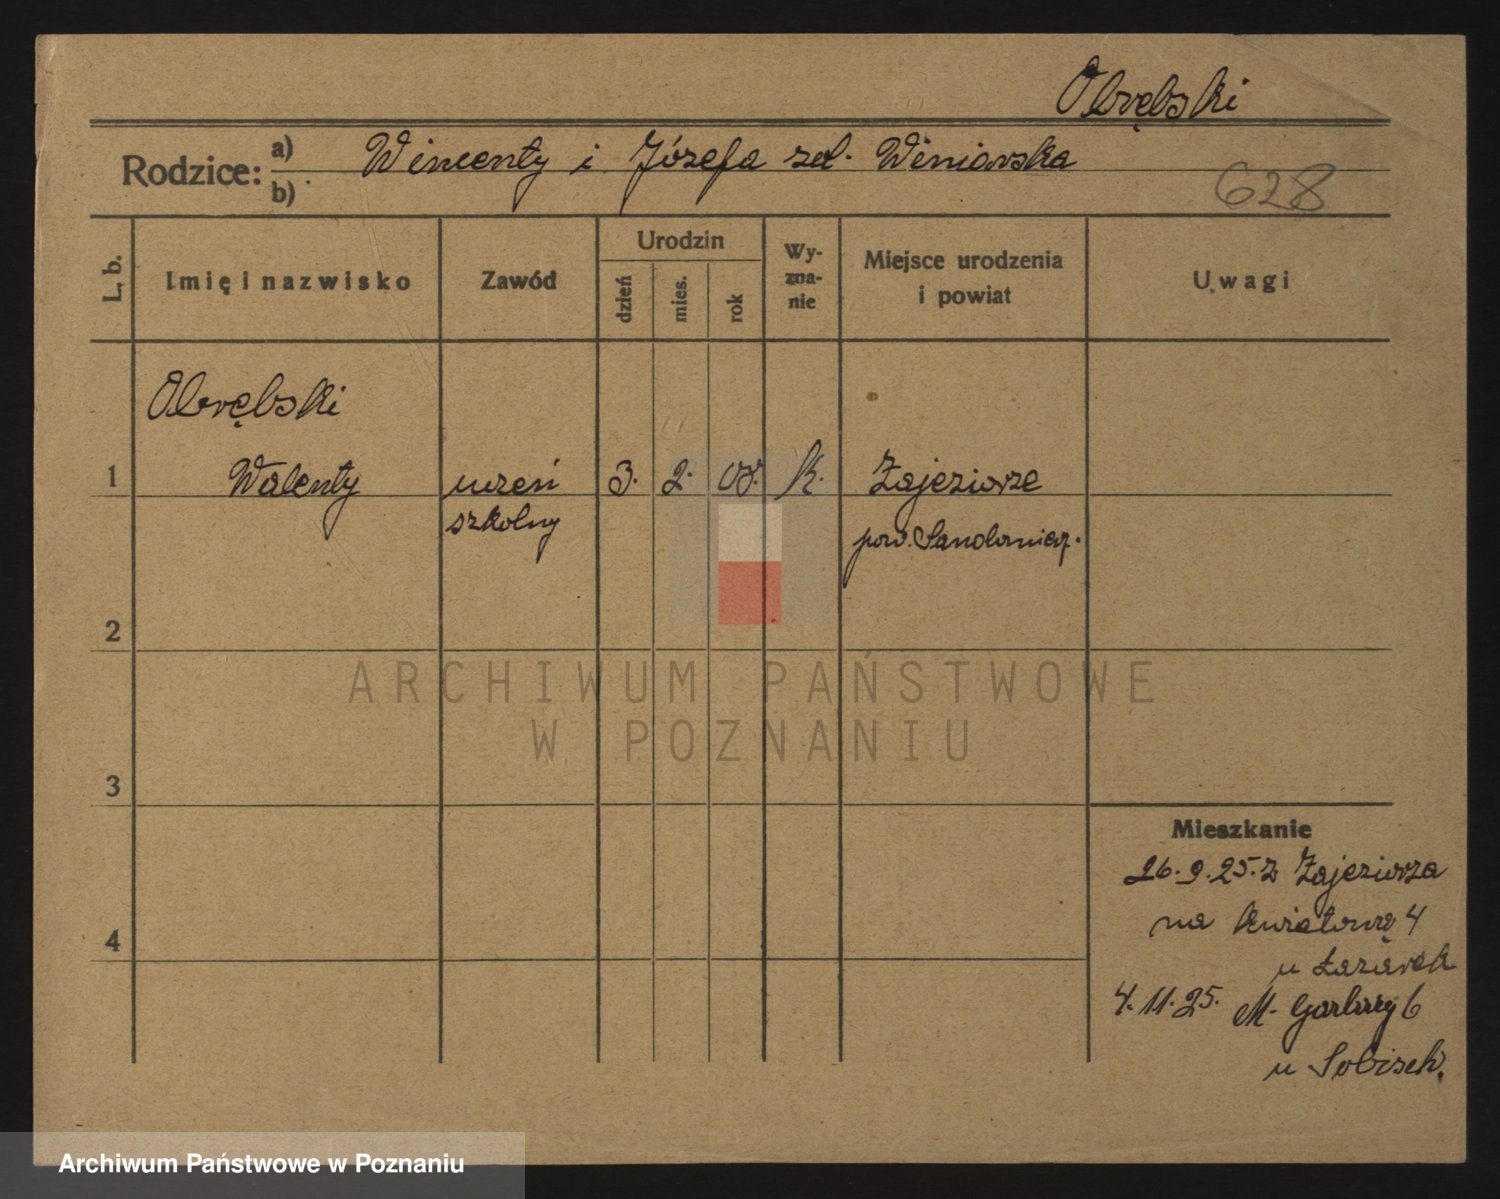 Obrębski
Rodzice: a) Wincenty i Józefa zd. Winiarska
b)
628
L. b. Imię i nazwisko Zawód Urodzin dzień mies. rok Wyznanie Miejsce urodzenia i powiat Uwagi
Obrębski
1 Walenty uczeń 3. 2. 08. k. Zajeziorze
szkolny pow. Sandomierz.
2
ARCHIWUM PAŃSTWOWE
W POZNANIU
3
Mieszkanie
26.9.25. z Zajeziorza
na Kwiatową 4
4
u Łazarek
4.11.25. M. Garbary 6
u Sobisek.
Archiwum Państwowe w Poznaniu